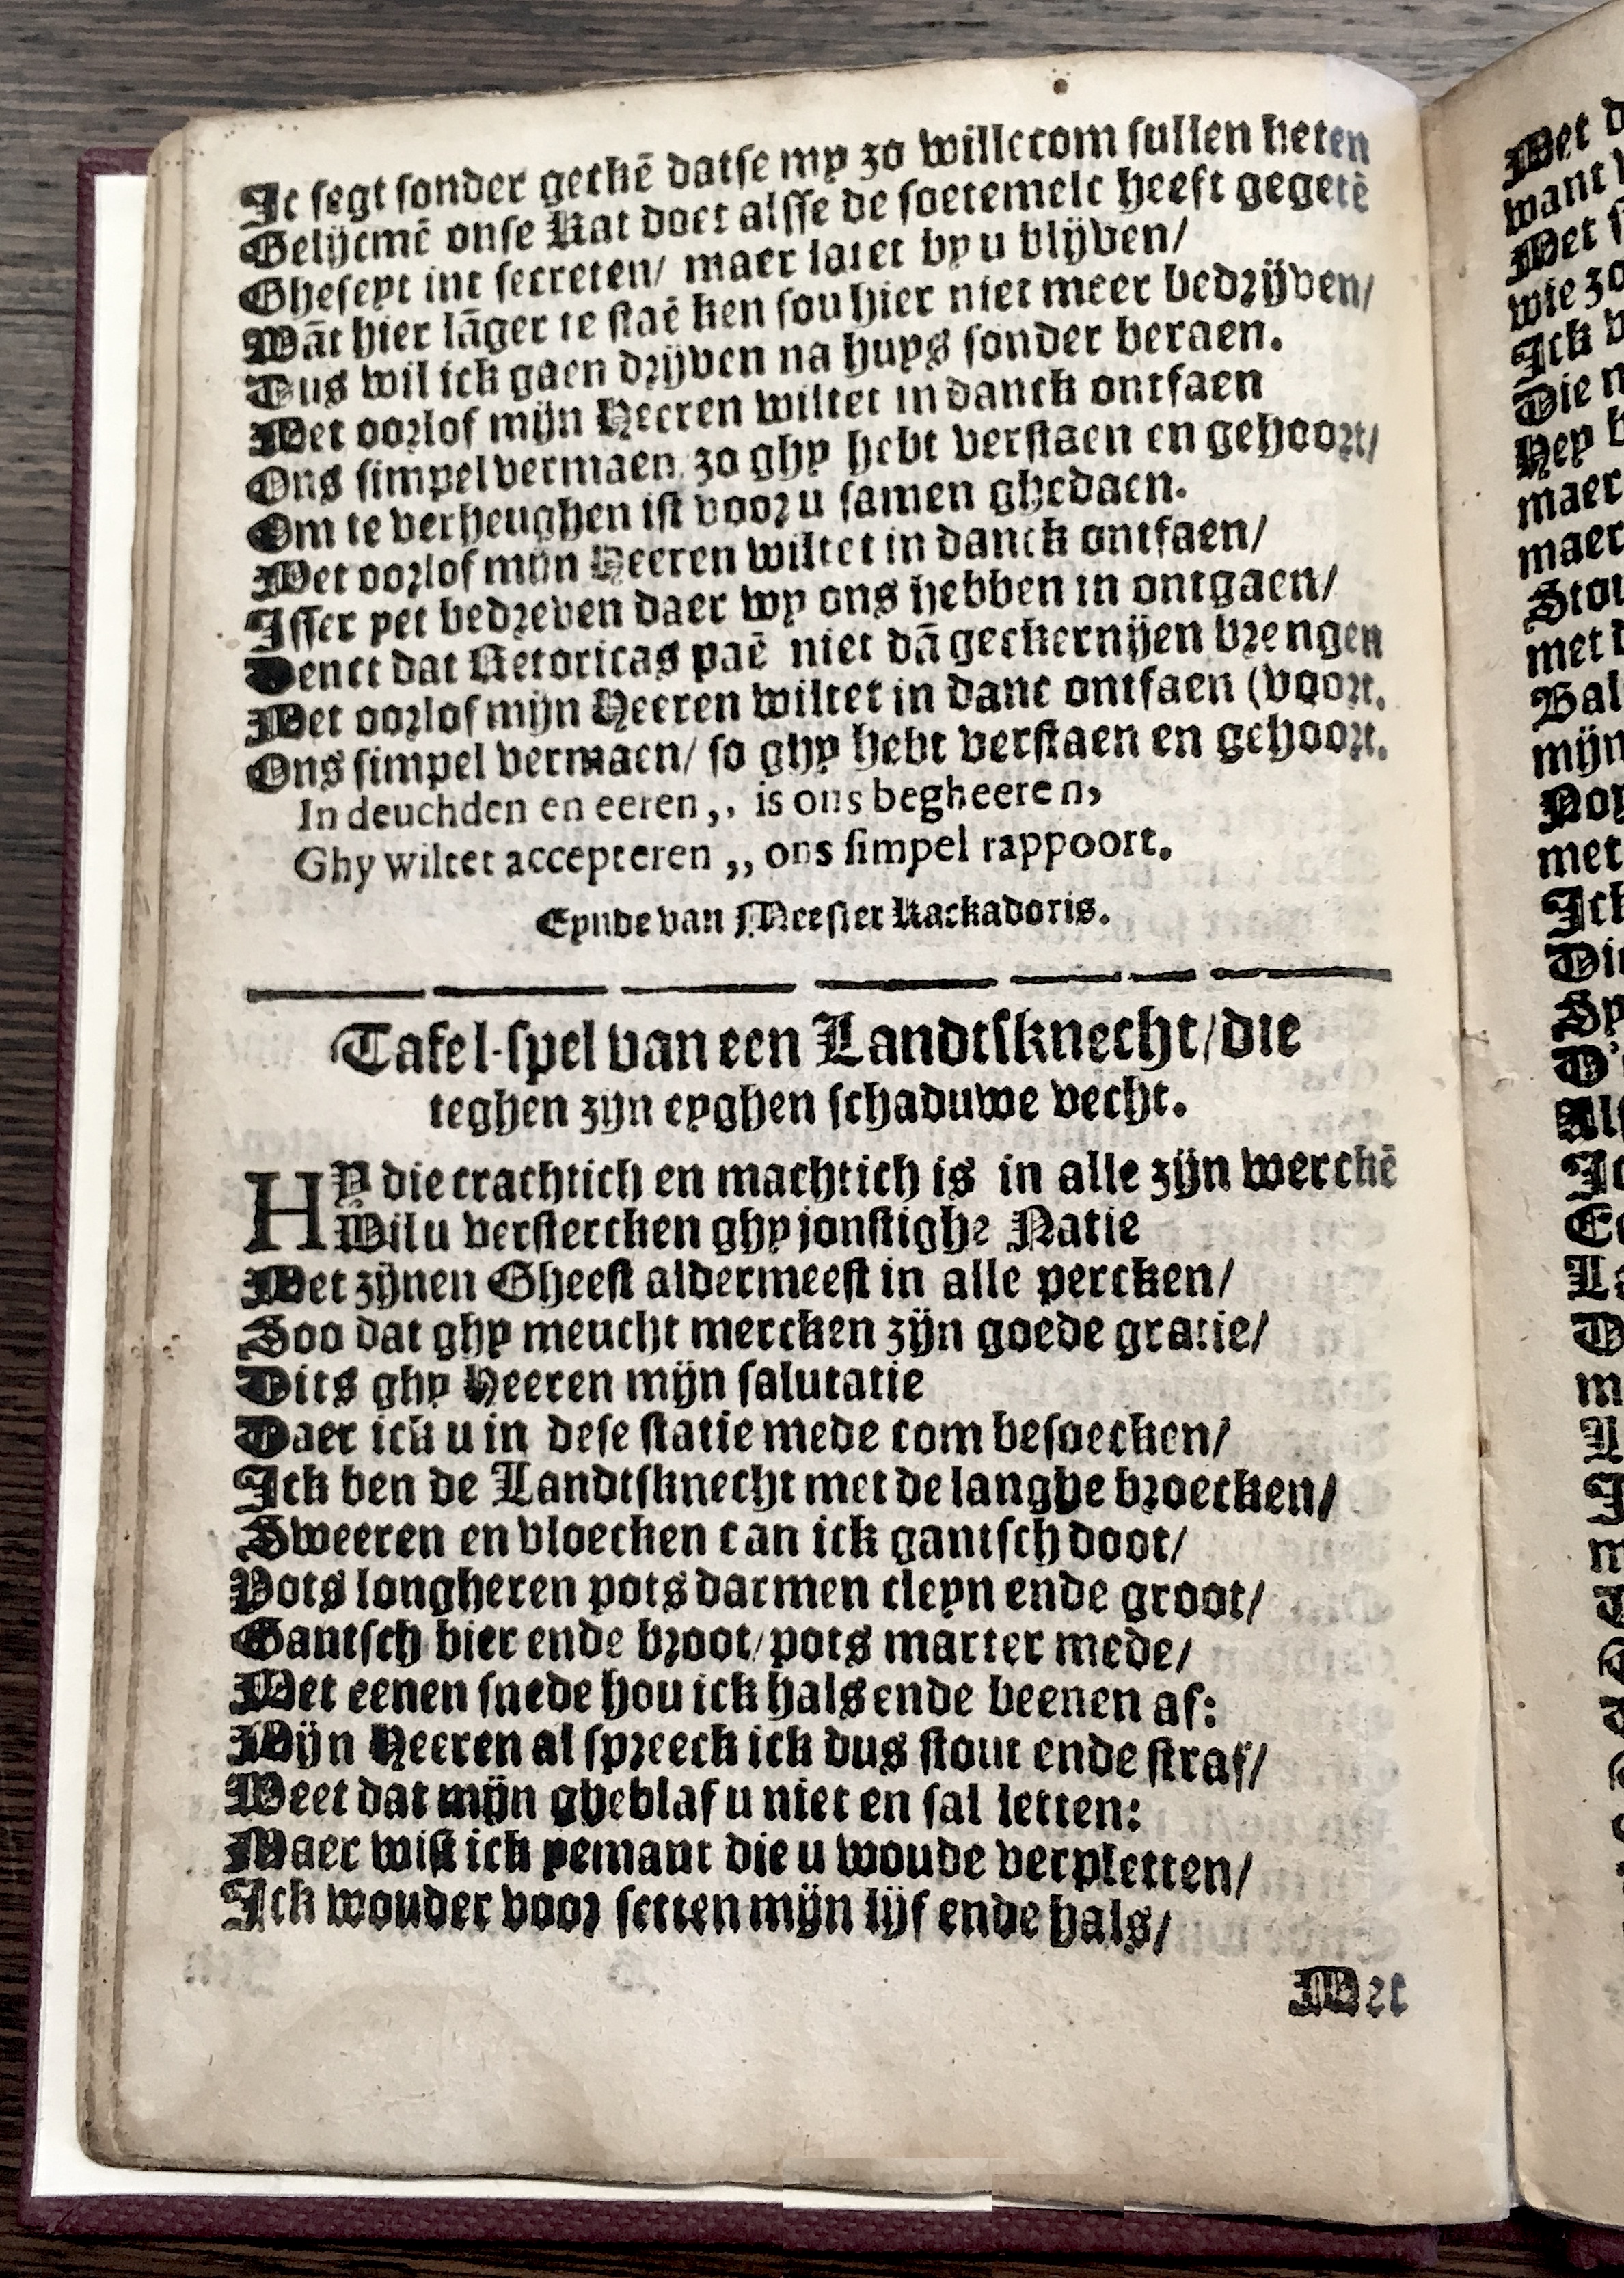 Ic segt sonder geckē datse my zo willecom sullen heten
Gelijcmē onse Kat doet alsse de soetemelc heeft gegetē
Ghesept int secreten/ maer latet by u blijven/
Wāt hier lāger te staē ken sou hier niet meer bedrijven/
Dus wil ick gaen drijven na huys sonder beraen.
Met oorlof mijn Heeren wiltet in danck ontfaen
Ons simpel vermaen zo ghy hebt verstaen en gehoort/
Om te verheughen ist voor u samen ghedaen.
Met oorlof mijn Heeren wiltet in danck ontfaen/
Isser yet bedreven daer wy ons hebben in ontgaen/
Denct dat Retoricas paē niet dā geckernijen brengen
Met oorlof mijn Heeren wiltet in danc ontfaen (voort.
Ons simpel vermaen/ so ghy hebt verstaen en gehoort.
In deuchden en eeren ,, is ons begheeren,
Ghy wiltet accepteren ,, ons simpel rappoort.
Eynde van Meester Kackadoris.
Tafel-spel van een Landtsknecht/die
teghen zijn eyghen schaduwe vecht.
HY die crachtich en machtich is in alle zijn werckē
Wil u verstercken ghy jonstighe Natie
Met zijnen Gheest aldermeest in alle percken/
Soo dat ghy meucht mercken zijn goede gratie/
Dits ghy Heeren mijn salutatie
Daer ick u in dese statie mede com besoecken/
Ick ben de Landtsknecht met de langhe broecken/
Sweeren en vloecken can ick gantsch doot/
Pots longheren pots darmen cleyn ende groot/
Gantsch bier ende broot/pots marter mede/
Met eenen snede hou ick hals ende beenen af:
Mijn Heeren al spreeck ick dus stout ende straf/
Weet dat mijn gheblaf u niet en sal letten:
Maer wist ick yemant die u woude verpletten/
Ick wouder voor setten mijn lijf ende hals/
Met